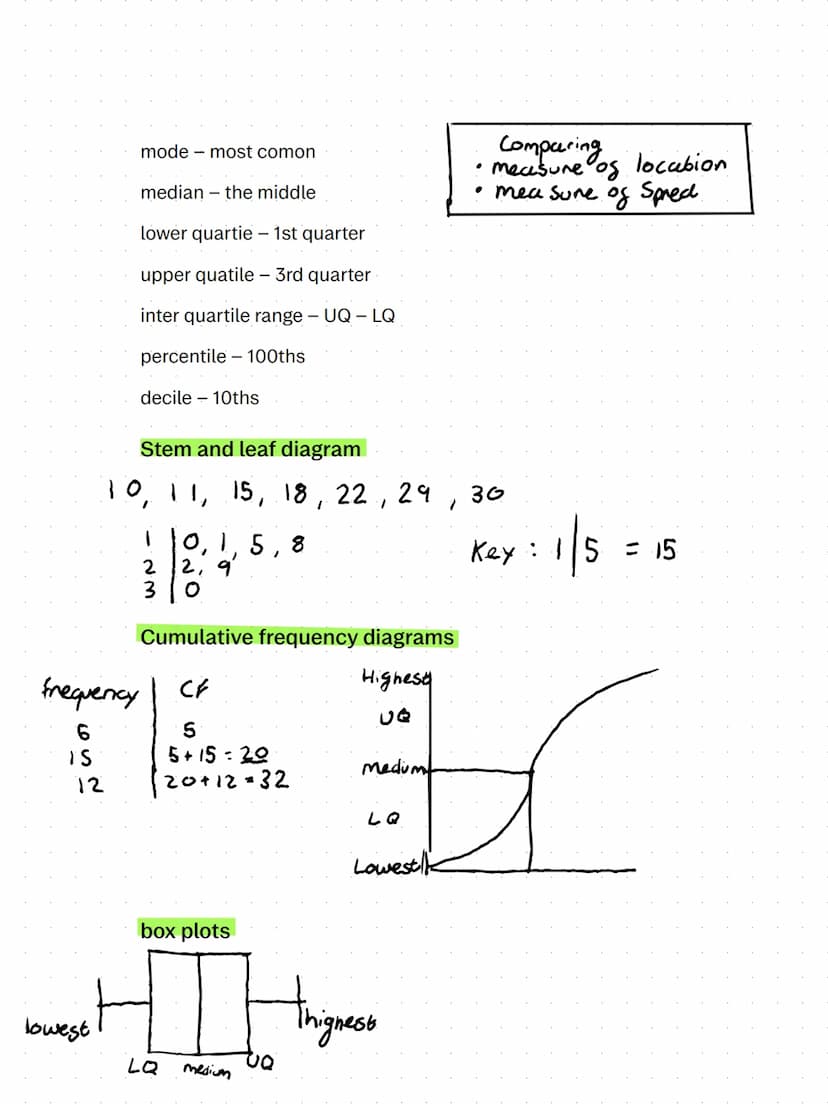 Comparing
• measure of location
• measure of Spred
mode – most comon
median – the middle
lower quartie – 1st quarter
upper quatile – 3rd quarter
inter quartile range – UQ – LQ
percentile – 100ths
decile – 10ths
Stem and leaf diagram
10, 11, 15, 18, 22, 29, 30
1 | 0, 1, 5, 8
2 | 2, 9
3 | 0
Key : 1 | 5 = 15
Cumulative frequency diagrams
frequency | CF
6 5
15 5+15=20
12 20+12=32
Highest
UQ
Medium
LQ
Lowest
box plots
lowest
highest
LQ medium UQ